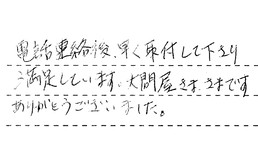 電話連絡後、早く取付して下さり
満足しています。大問屋さま、さまです
ありがとうございました。